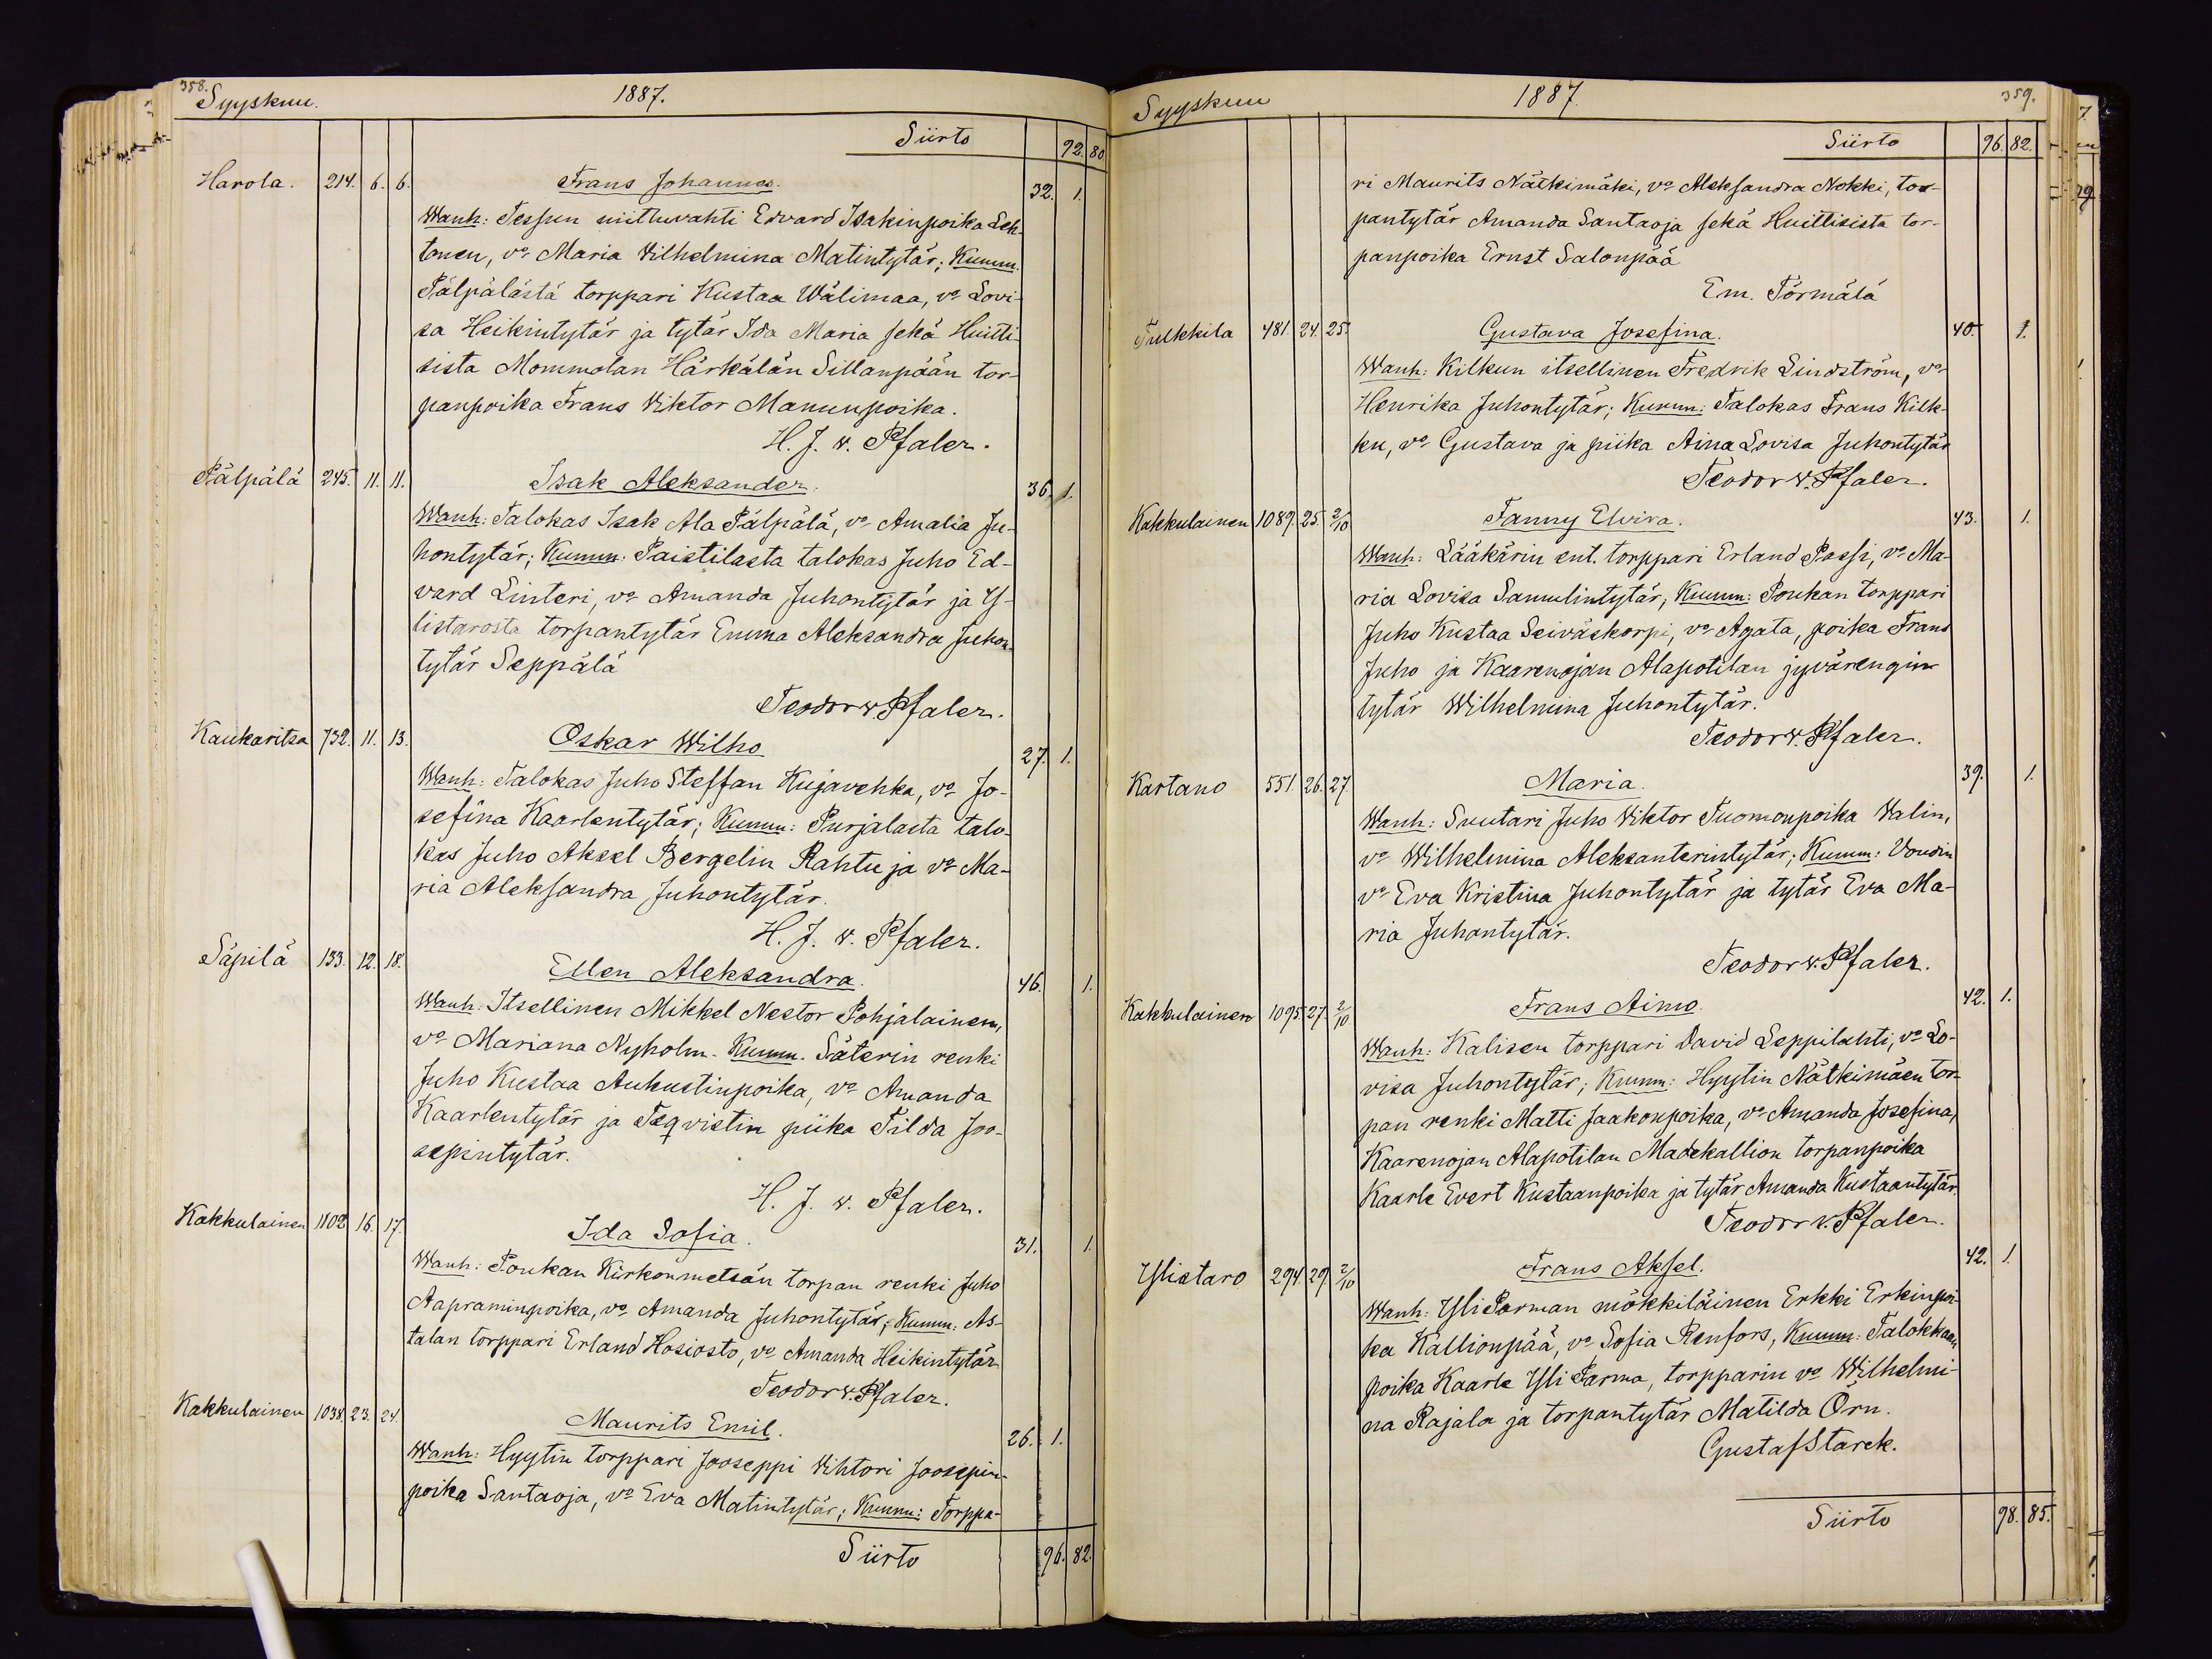 358.
Syyskuu. 1887.
Siirto 92. 80
Harola. 214. 6. 6. Frans Johannes. 32. 1.
Wanh: Tessun niittuvahti Edvard Isakinpoika Leh-
tonen, vo Maria Vilhelmina Matintytär; Kumm.
Pälpälästä torppari Kustaa Wälimaa, vo Lovi-
sa Heikintytär ja tytär Ida Maria sekä Huitti-
sista Mommolan Härkälän Sillanpään tor-
panpoika Frans Viktor Manunpoika.
H. J. v. Pfaler.
Pälpälä 245. 11. 11. Isak Aleksander. 36. 1.
Wanh: Talokas Isak Ala Pälpälä, vo Amalia Ju-
hontytär; Kumm: Paistilasta talokas Juho Ed-
vard Linteri, vo Amanda Juhontytär ja Y-
listarosta torpantytär Emma Aleksandra Juhon-
tytär Seppälä
Teodor v. Pfaler.
Kaukaritsa 732. 11. 13. Oskar Wilho 27. 1.
Wanh: Talokas Juho Steffan Kujavehka, vo Jo-
sefina Kaarlentytär; Kumm: Purjalasta talo-
kas Juho Aksel Bergelin Rahtu ja vo Ma-
ria Aleksandra Juhontytär.
H. J. v. Pfaler.
Säpilä 133. 12. 18. Ellen Aleksandra. 46. 1.
Wanh: Itsellinen Mikkel Nestor Pohjalainen,
vo Mariana Nyholm. Kumm. Säterin renki
Juho Kustaa Aukustinpoika, vo Amanda
Kaarlentytär ja Teqvistin piika Tilda Joo-
sepintytär.
H. J. v. Pfaler.
Kakkulainen 1102 16. 17. Ida Sofia. 31. 1.
Wanh: Poukan Kirkonmetsän torpan renki Juho
Aapraminpoika, vo Amanda Juhontytär; Kumm: As-
talan torppari Erland Hosiosto, vo Amanda Heikintytär
Teodor v. Pfaler.
Kakkulainen 1038. 23. 24. Maurits Emil. 26. 1.
Wanh: Hyytin torppari Jooseppi Vihtori Joosepin-
poika Santaoja, vo Eva Matintytär; Kumm: Torppa-
Siirto 96. 82.
359.
Syyskuu 1887.
Siirto 96. 82.
ri Maurits Nätkimäki, vo Aleksandra Nokki, tor-
pantytär Amanda Santaoja sekä Huittisista tor-
panpoika Ernst Salonpää
Em. Törmälä
Tulkkila 481. 24. 25. Gustava Josefina. 40. 1.
Wanh: Kilkun itsellinen Fredrik Lindström, vo
Henrika Juhontytär; Kumm: Talokas Frans Kilk-
ku, vo Gustava ja piika Aina Lovisa Juhontytär
Teodor v. Pfaler.
Kakkulainen 1089. 25. 2/10 Fanny Elvira. 43. 1.
Wanh: Lääkärin ent. torppari Erland Passi, vo Ma-
ria Lovisa Samulintytär, Kumm: Poukan torppari
Juho Kustaa Seiväskorpi, vo Agata, poika Frans
Juho ja Kaarenojan Alapotilan jyvärengin
tytär Wilhelmina Juhontytär.
Teodor v. Pfaler.
Kartano 551. 26. 27. Maria. 39. 1.
Wanh: Suutari Juho Viktor Tuomonpoika Valin,
vo Wilhelmina Aleksanterintytär; Kumm: Voudin
vo Eva Kristina Juhontytär ja tytär Eva Ma-
ria Juhontytär.
Teodor v. Pfaler.
Kakkulainen 1095. 27. 2/10 Frans Aimo. 42. 1.
Wanh: Kalisen torppari David Leppilahti, vo Lo-
visa Juhontytär; Kumm: Hyytin Nätkimäen tor-
pan renki Matti Jaakonpoika, vo Amanda Josefina,
Kaarenojan Alapotilan Madekallion torpanpoika
Kaarle Evert Kustaanpoika ja tytär Amanda Kustaantytär.
Teodor v. Pfaler.
Ylistaro 294. 29. 2/10 Frans Aksel. 42. 1.
Wanh: Yli Parman mökkiläinen Erkki Erkinpoi-
ka Kallionpää, vo Sofia Renfors, Kumm: Talokkaan
poika Kaarle Yli Parma, torpparin vo Wilhelmi-
na Rajala ja torpantytär Matilda Örn.
Gustaf Starck.
Siirto 98. 85.